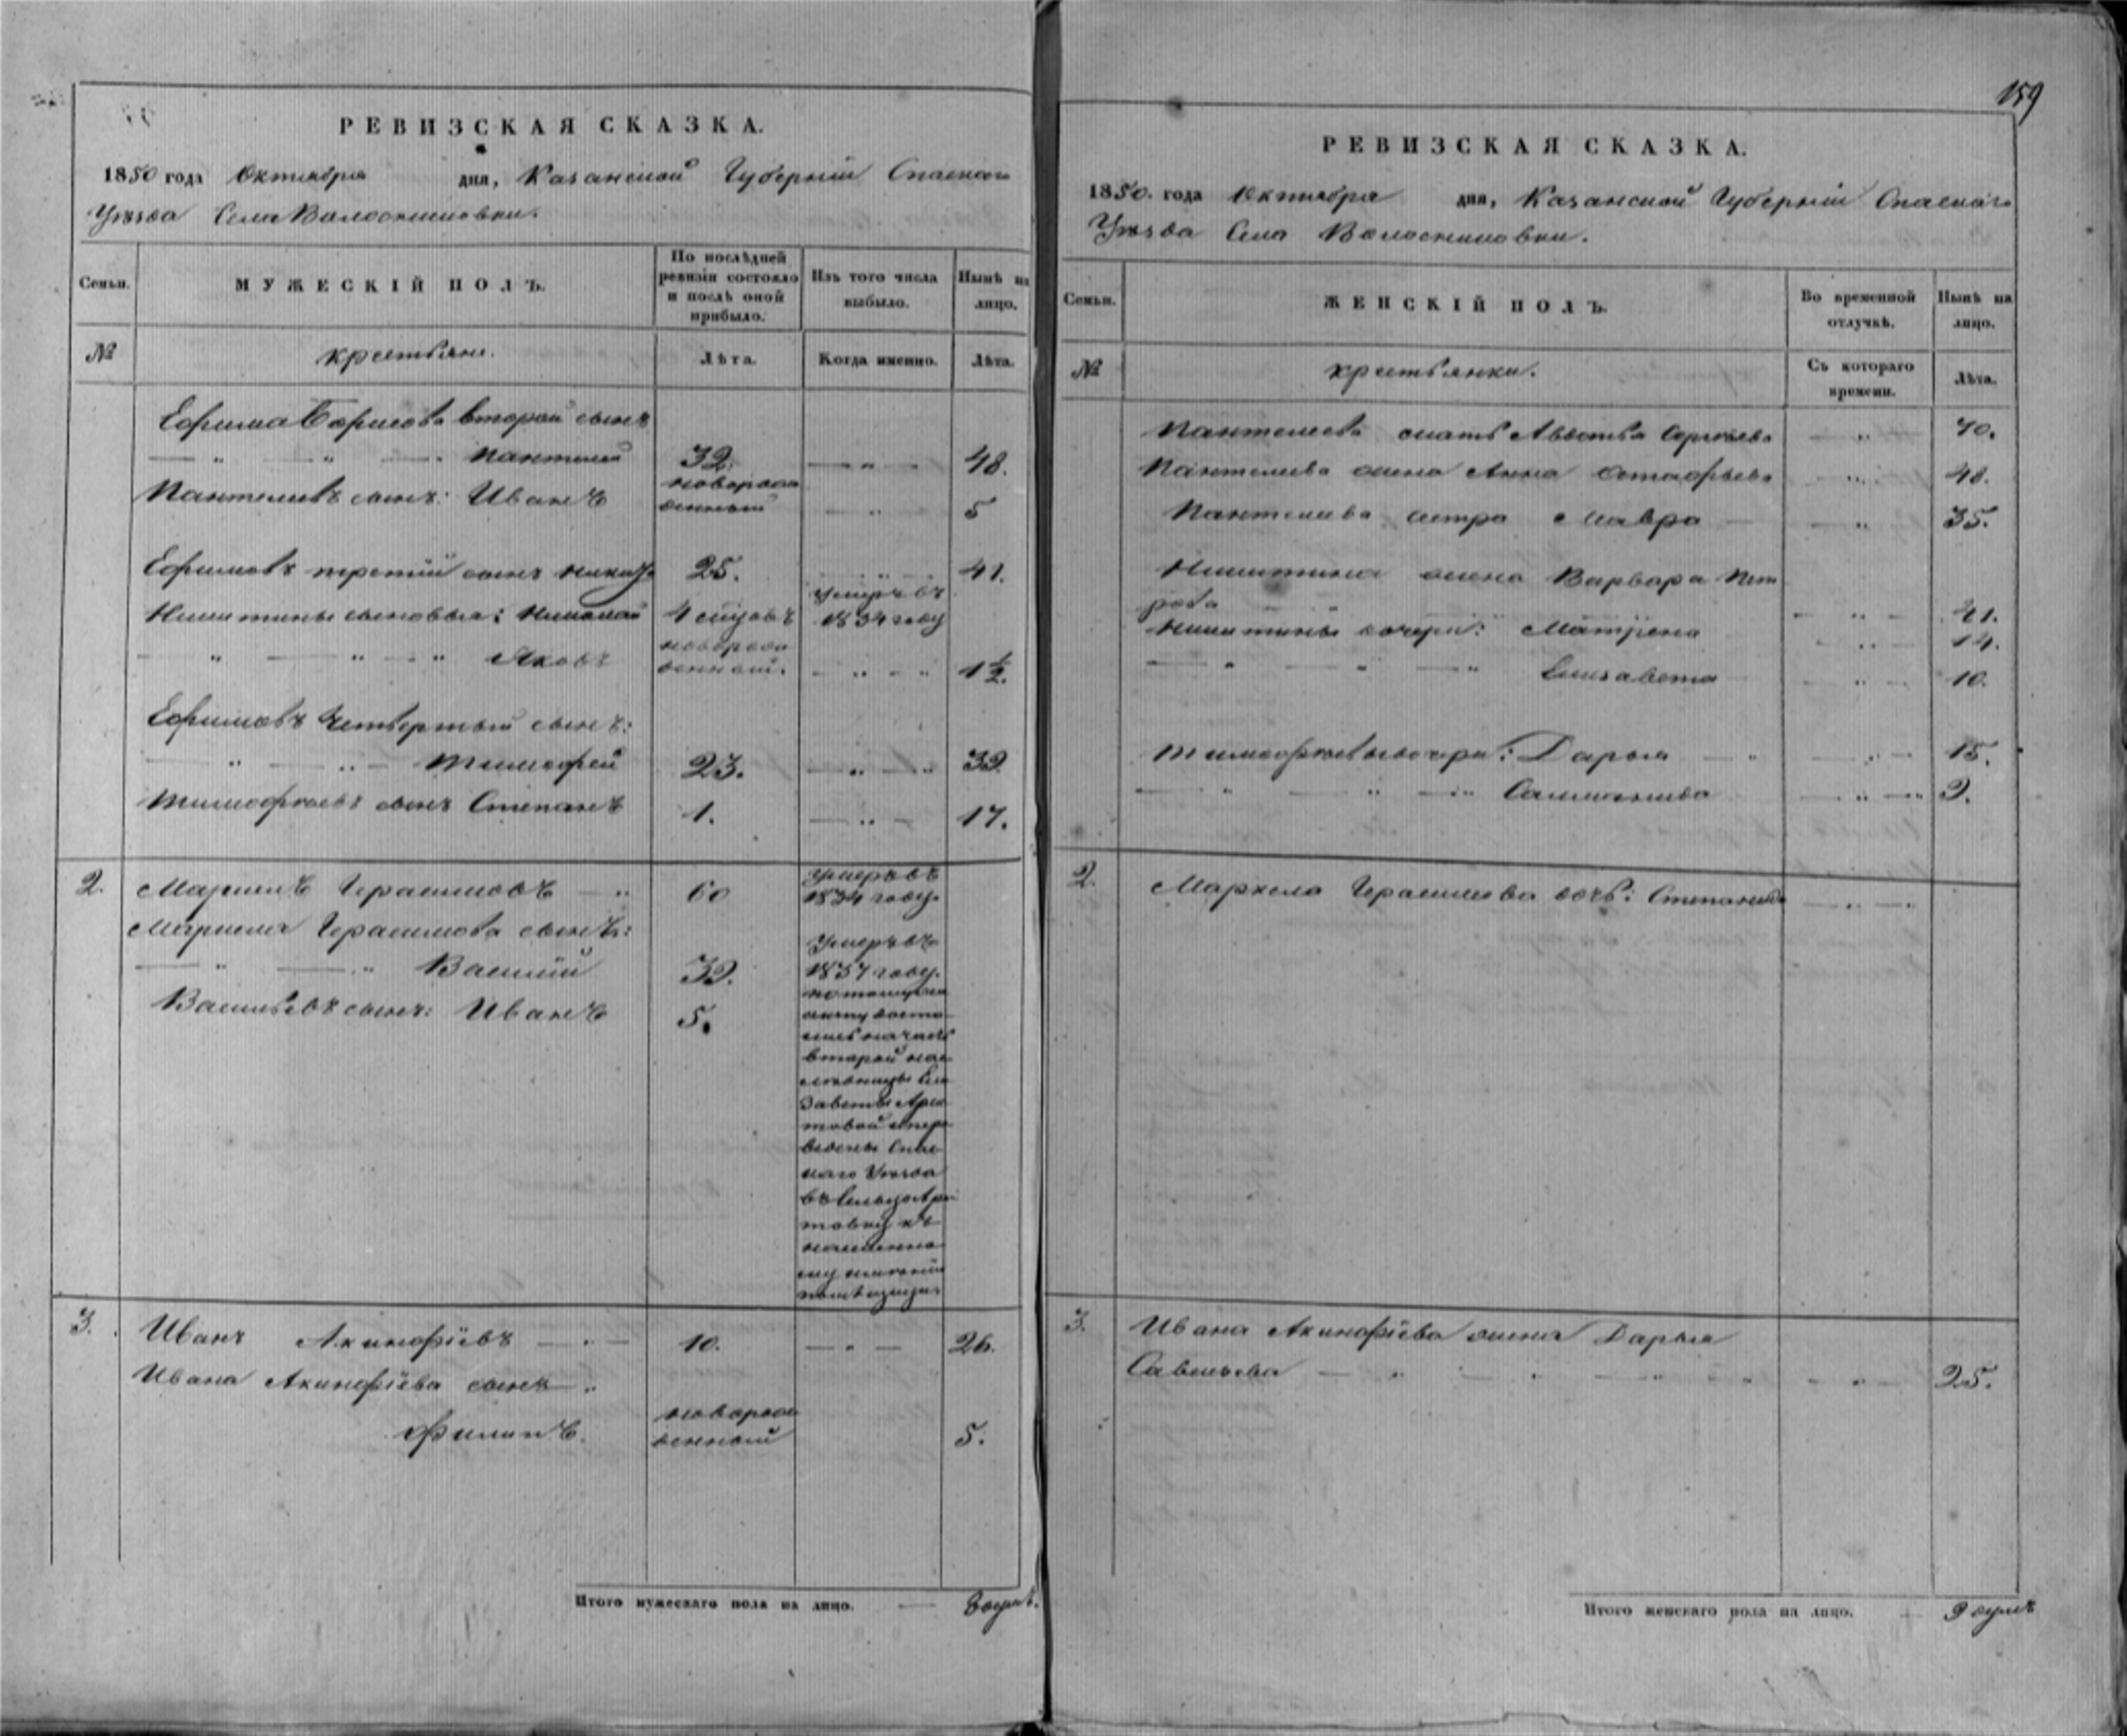 159
РЕВИЗСКАЯ СКАЗКА.
1850 года Октября дня, Казанской Губернии Спаскаго
Уезда Села Волосниковки.
Семьи. МУЖЕСКІЙ ПОЛЪ. По послѣдней ревизіи состояло и послѣ оной прибыло. Изъ того числа выбыло. Нынѣ на лицо.
№ крестьяне. Лѣта. Когда именно. Лѣта.
Ефима Борисова второй сынъ
— " — " — Пантелей 32. — " — 48.
Пантелеевъ сынъ: Иванъ новорож
денный — " — 5
Ефимовъ третій сынъ Никита 25. — " — 41.
Никитины сыновья: Николай 4 умеръ въ
1834 году
— " — " — " Яковъ новорож
денный. — " — " 1½.
Ефимовъ Четвертый сынъ:
— " — " — Тимофей 23. — " — " 39
Тимофѣевъ сынъ Степанъ 1. — " — 17.
2. Маркелъ Герасимовъ — " 60 Умеръ въ
1834 году.
Маркела Герасимова сынъ:
— " — " Василий 39. Умеръ въ
1837 году.
Васильевъ сынъ: Иванъ 5.
второй нас
заветы
ведены Спас
каго Уезда
въ Сельцо
товку къ
3. Иванъ Акинфіевъ — " — 10. — " — 26.
Ивана Акинфіева сынъ — "
Филипъ. новорож
денный 5.
Итого мужескаго пола на лицо. — 8 душъ.
РЕВИЗСКАЯ СКАЗКА.
1850. года Октября дня, Казанской Губерніи Спаскаго
Уезда Села Волосниковки.
Семьи. ЖЕНСКІЙ ПОЛЪ. Во временной отлучкѣ. Нынѣ на лицо.
№ крестьянки. Съ котораго времени. Лѣта.
Пантелеева мать Авдотья Сергѣева — " — 70.
Пантелеева жена Анна Остафьева — " — 48.
Пантелеева сестра Мавра — — " — 35.
Никитина жена Варвара Пет
рова — " — 41.
Никитины дочери: Матрена — " — 14.
— " — " — " Елизавета — " — 10.
Тимофѣевы дочери: Дарья — " — " — 15.
— " — " — " — " — " 9.
2. Маркела Герасимова дочь: Степанида — " — .
3. Ивана Акинфіева жена Дарья
Савельева — " — " — " — " — " — 25.
Итого женскаго пола на лицо. — 9 душъ